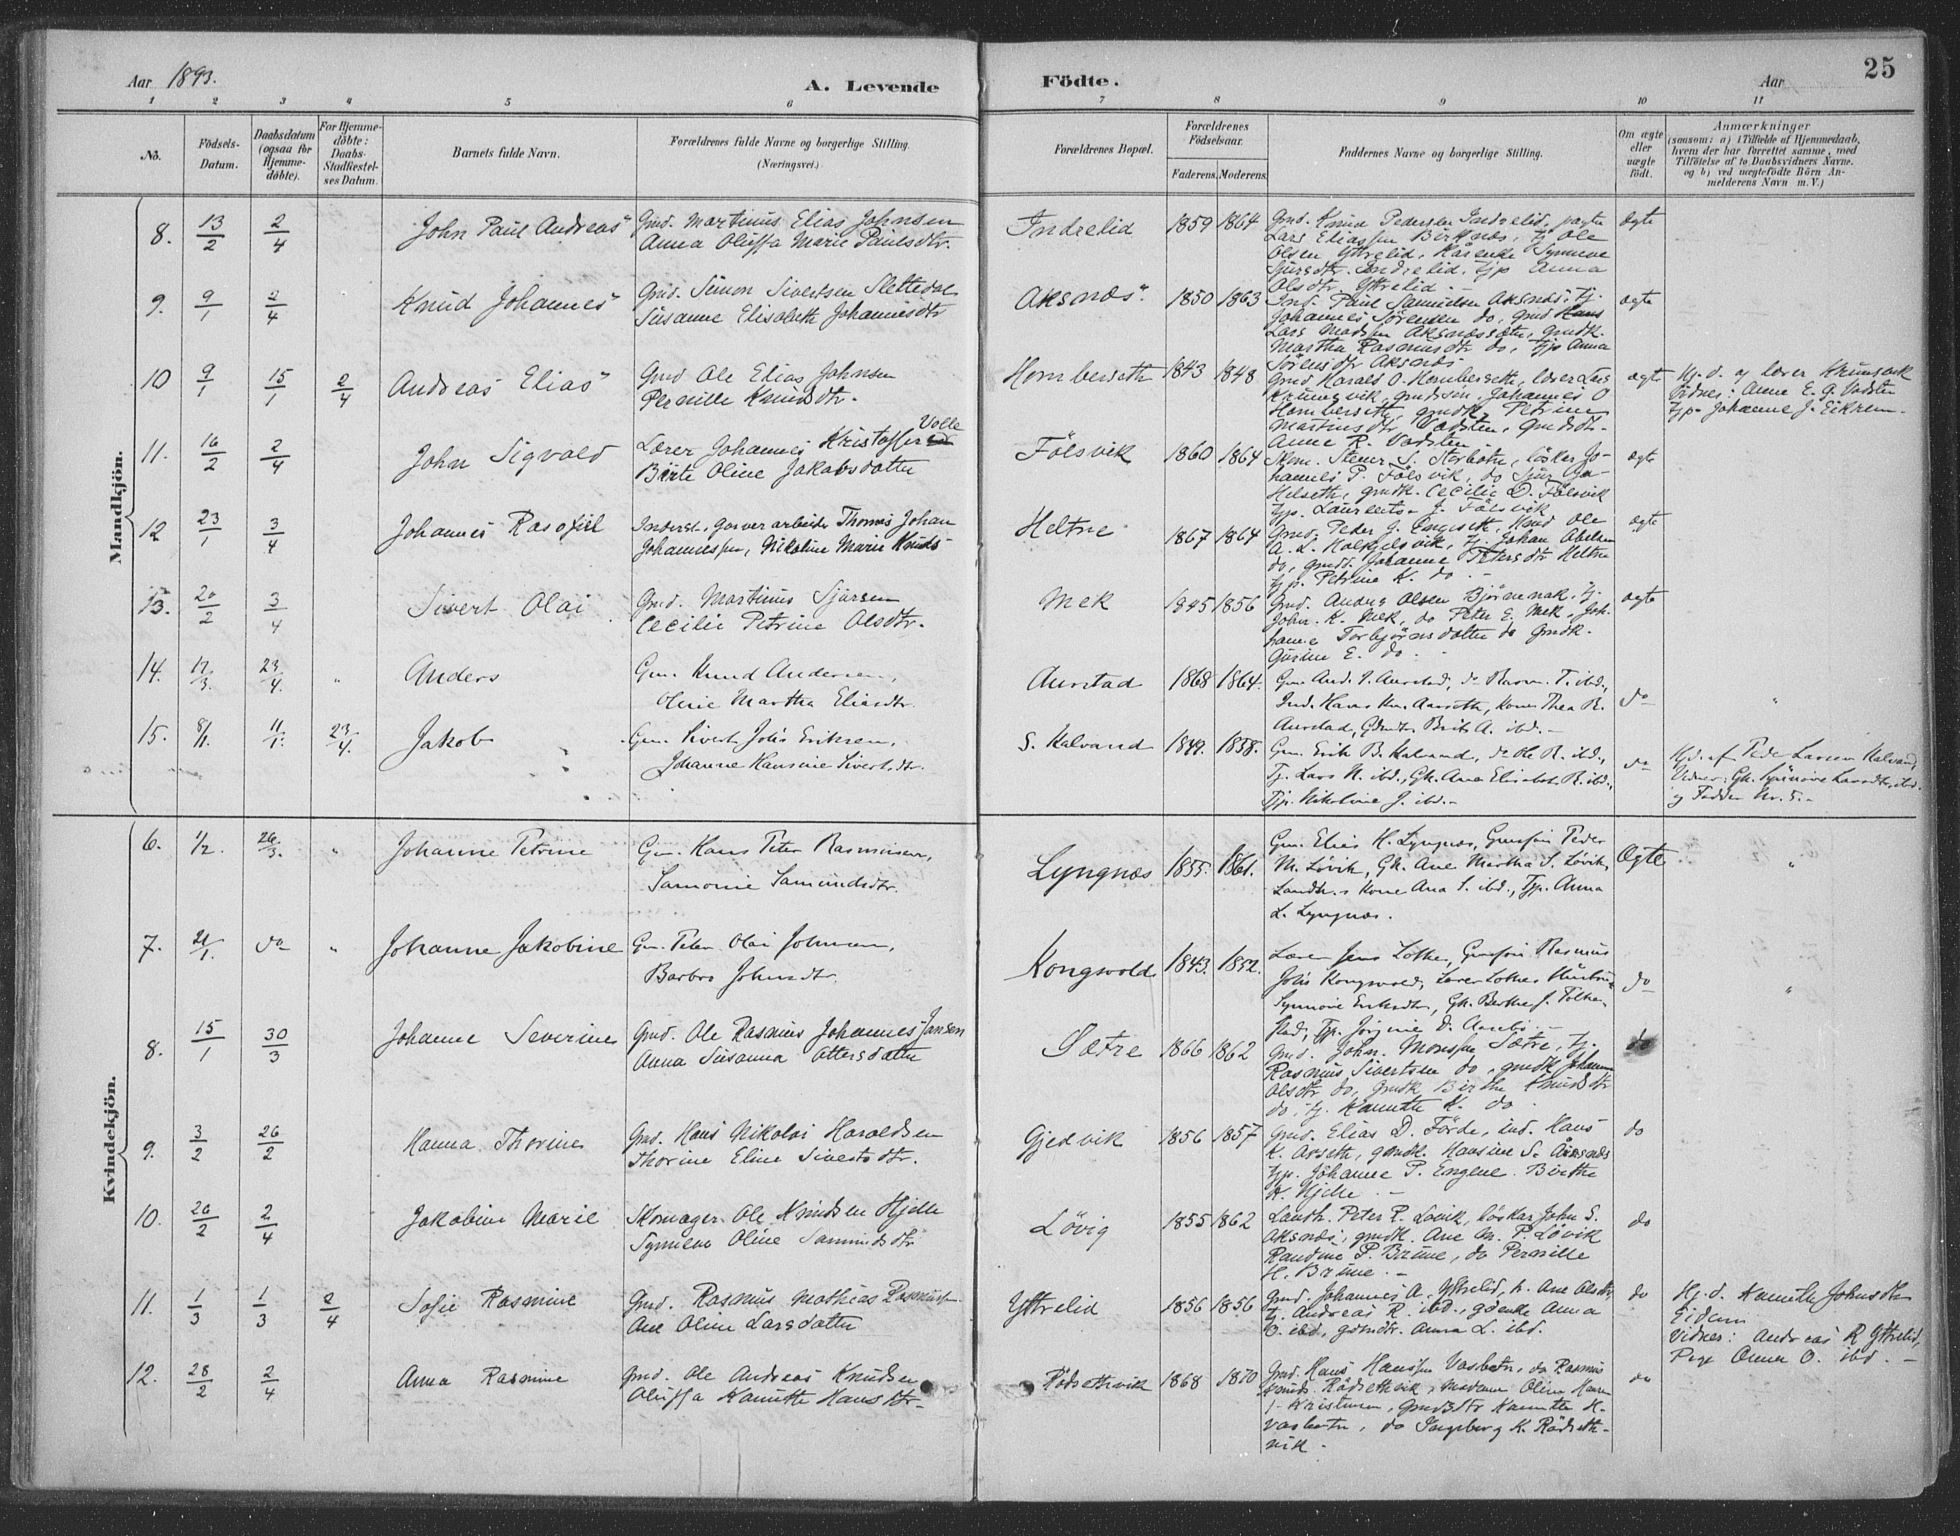 Aar 1893.
A. Levende
Födte.
Aar
25
1 2 3 4 5 6 7 8 9 10 11
No.
Födsels-Datum.
Daabsdatum (ogsaa för Hjemme-döbte).
For Hjemme-döbte: Daabs-Stadfæstel-ses Datum.
Barnets fulde Navn.
Forældrenes fulde Navne og borgerlige Stilling.
(Næringsvei.)
Forældrenes Bopæl.
Forældrenes Födselsaar.
Faderens. Moderens.
Faddernes Navne og borgerlige Stilling.
Om ægte eller uægte födt.
Anmærkninger
(saasom: a) i Tilfælde af Hjemmedaab,
hvem der har forrettet samme, med
Tilföielse af to Daabsvidners Navne.
og b) ved uægtefödte Börn An-
melderens Navn m. V.)
Mandkjön.
8. 13/2 2/4 John Paul Andreas Gmd. Martinus Elias Johnsen
Anna Oluffa Marie Paulsdtr.
Indrelid 1859 1864 Gmd. Knud Pedersen Indrelid
Lars Eliassen Birknæs, tj Ole
Olsen Yttrelid,
Indrelid, tjp Anna
Olsdtr Yttrelid. -
ægte
9. 9/1 2/4 Knud Johannes Gmd. Simon Sivertsen Slettedal
Susanne Elisabeth Johannesdtr
Aksnæs. 1850 1863 Ind. Paul Samuelsen Aksnæs, tj.
Johannes Sörensen do, gmd
Lars Madsen
Martha Rasmusdtr do, tjp Anna
Sörensdtr Aksnæs
ægte
10 9/1 15/1 2/4 Andreas Elias Gmd Ole Elias Johnsen
Pernille Knudsdtr.
Hornberseth 1843 1848 Gmd Harald O. Hornberseth, lærer Lars
Krumsvik, gmdsøn. Johannes O
Hornberseth, gmdk. Petrine
Martinusdtr Vadsten, Gmdsdtr.
Anne R. Vadsten.
ægte Hj. d. af lærer Krumsvik
Vidner: Anne E. G. Vadsten
tjp Johanne J. Eikrem.
11. 16/2 2/4 John Sigvald Lærer Johannes Kristoffer Volle
Birte Oline Jakobsdatter
Fölsvik 1860 1864 Skom. Stener S. Storbotn, lösker Jo-
hannes P. Fölsvik, do Sjur
Helseth, gmdk. Cecilie D. Fölsvik
tjp. J. Fölsvik
ægte
12 23/1 3/4 Johannes Rasofiel Inderst, garverarbeider Thomas Johan
Johannessen, Nikoline Marie Knuds-
Heltne 1867 1864 Gmd. Peter J. Engeseth, Knud Ole
A. L. Kalkjelsvik, tj. Johan Abelsen
do, gmdd. Johanne Petersdtr Heltne
tjp. Petrine K. do. -
ægte
13. 20/2 3/4 Sivert Olai Gmd. Martinus Sjursen
Cecilie Petrine Olsdtr.
Mek 1845 1856 Gmd. Anders Olsen Björnenak, tj.
John. K. Mek, do Peter E. Mek. Joh-
hanne Torbjörnsdatter do Gmdk.
Gurine E. do.
ægte
14. 17/3. 23/4. " Anders Gm. Knud Andersen,
Oline Martha Eliasdtr.
Aurstad 1868 1864. Gm. And. I. Aurstad, do Rasm. T. ibd.,
Ind. Hans Kn. Aarseth, kone Thea R.
Aurstad, Gdmdtr. Brit A. ibd. -
do "
15. 8/1. 11/1. 23/4. Jakob Gm. Sivert Johs Eriksen,
Johanne Hansine Sivertsdtr.
S. Kalvand 1849. 1858. Gm. Erik B. Kalvand, do Ole R. ibd.,
Tj. Lars N. ibd., Gk. Ane Elisabet R. ibd.,
Tjp. Nikoline J. ibd. -
do Hjd. af Peder Larsen Kalvand,
Vidner: Gk. Synnöve Larsdtr, ibd.
og Fadder Nr. 5. -
Kvindekjön.
6. 1/2. 26/3. " Johanne Petrine Gm. Hans Peter Rasmussen,
Samonie Samundsdtr.
Lyngnæs 1855. 1861. Gm. Elias H. Lyngnæs, Gmsön Peder
M. Lövik, Gk. Ane Martha S. Lövik,
Landh.s kone Ana S. ibd., Tjp. Anna
L. Lyngnæs.
Ægte "
7. 21/1. do " Johanne Jakobine Gm. Peter Olai Johnsen,
Barbro Johnsdtr.
Kongsvold 1843. 1852. Lærer Jens Lothe, Gmsön Rasmus
Johs Kongsvold, Lærer Lothes Hustru
Synnöve Eriksdtr, Gk. Berthe J. Folke-
stad, Tjp. Jörgine D. Aambö. -
do "
8. 15/1 30/3 Johanne Severine Gmd. Ole Rasmus Johannes Jansen
Anna Susanna Ottersdatter
Sætre 1866 1862 Gmd. John. Monssen Sætre, tj.
Rasmus Sivertsen do, gmdk Johanne
Olsdtr do, gmdk Birthe Knudsdtr
do, tj. Kanutte K. do.
do
9. 3/2 26/2 Hanna Thorine Gmd. Hans Nikolai Haraldsen
Thorine Eline Sivertsdtr.
Gjedvik 1856 1857 Gmd. Elias D. Förde, ind. Hans
K. Arseth, gmdk. Hansine S.
tjp. Johanne P. Engene. Birthe
H. Hjelle. -
do
10. 26/2 2/4 Jakobine Marie Skomager Ole Knudsen Hjelle
Synneve Oline Samundsdtr
Lövig 1855 1862 Landh. Peter P. Lövik, löskar John S.
Aksnæs, gmdk. Ane M. P. Lövik
Randine P. Brune, do Pernille
H. Brune. -
do
11. 1/3 1/3 2/4 Sofie Rasmine Gmd. Rasmus Mathias Rasmussen
Ane Oline Larsdatter
Yttrelid 1856 1856 Gmd. Johannes A. Yttrelid, k. Ane Olsdtr
tj. Andreas R. ibd., gdenke Anna
O. ibd, gdmdtr. Anna L. ibd.
do Hj. d. Kanutte Johnsdtr
Eidem
Vidner: Andreas R Yttrelid,
Pige Anna O. ibd. -
12. 28/2 2/4 Anna Rasmine Gmd. Ole Andreas Knudsen
Oluffa Kanutte Hansdtr.
Rödsethvik 1868 1870 Gmd. Hans Hanssen Vasbotn, do Rasmus
Knuds. Rödsethvik, madam Oline Hans
Kristensen, Gmdsdtr Kanutte H.
Vasbotn, do Ingeborg K. Rödseth-
vik.
do